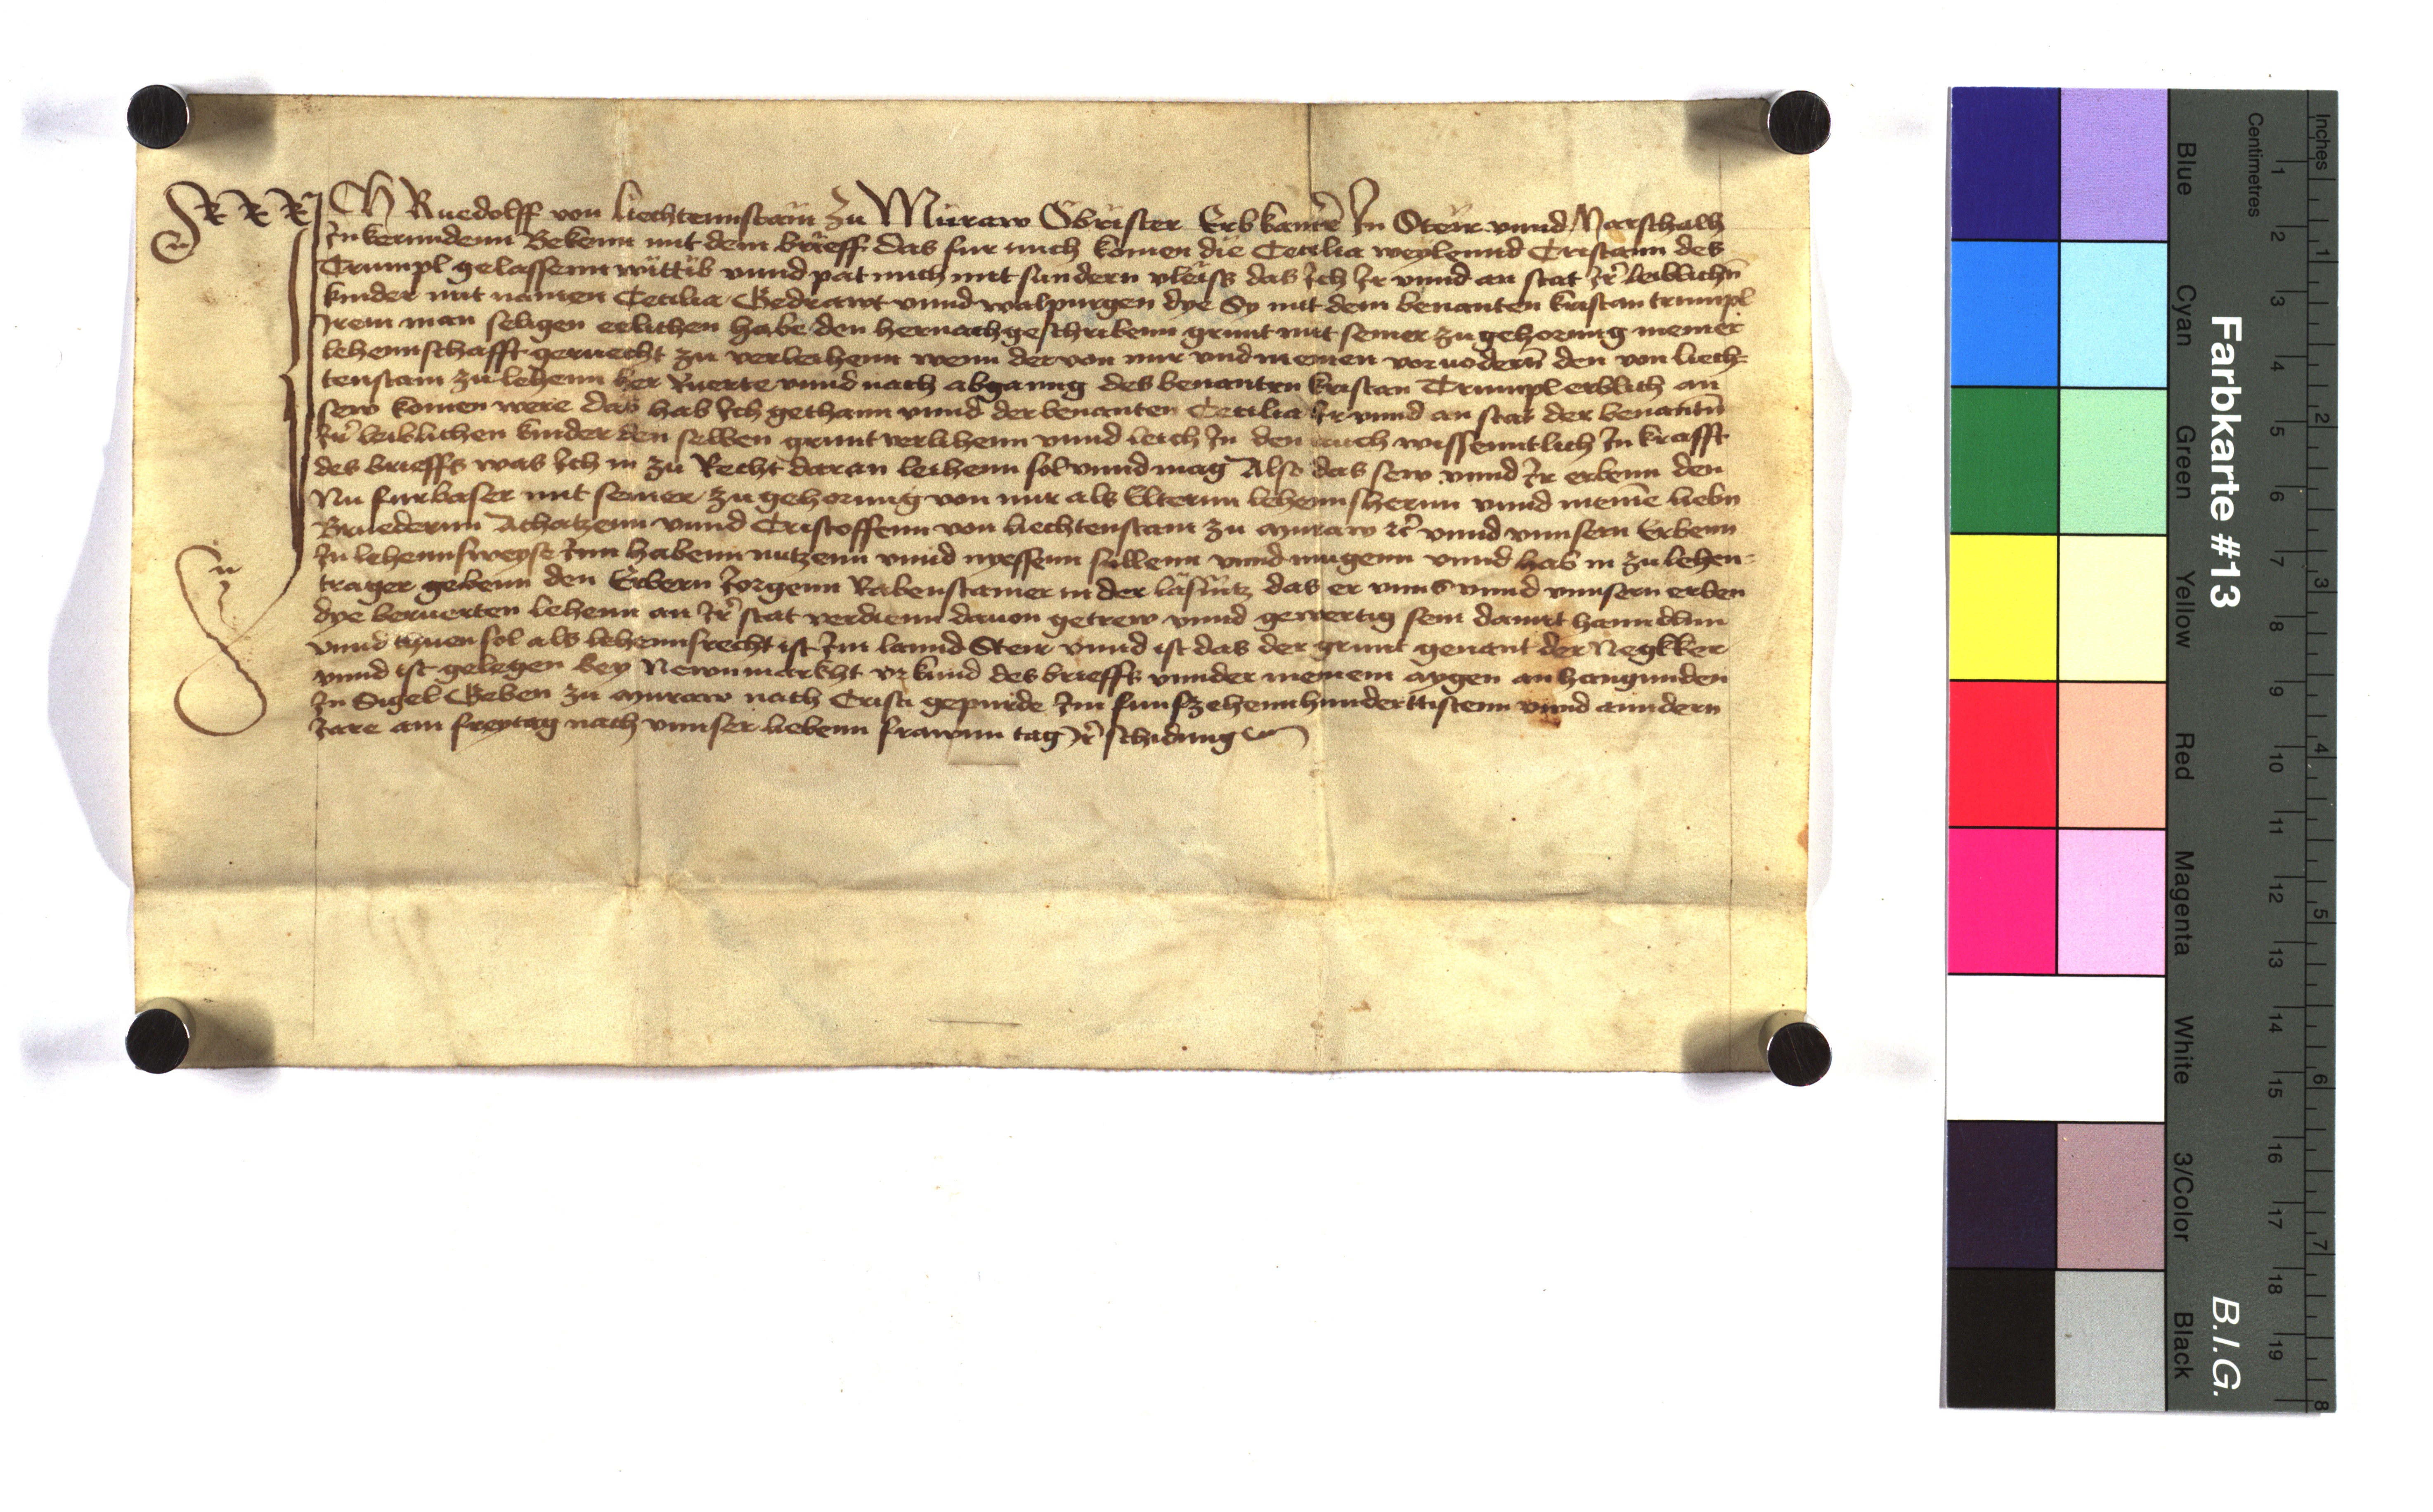 ICH Ruedolff von Liechtennstain zu Muraw Obrister Erbkamrer In Steir vnnd Marschalh
In kernndenn Bekenn mit dem brieff das fur mich komen die Cecilia weylennd Cristann des
Trumpl gelassenn wittib vnnd pat mich mit sundern vleiss das Ich Ir vnnd an stat Jr leiblichn
kinder mit namen Cecilia Gedrawt vnnd walpurgen dye Sy mit dem benanten kristan trumpl
Irem man seligen eelichen habe den hernachgeschribenn grunt mit seiner zugehorung meiner
lehennschafft geruecht zu verleihenn wenn der von mir vnd meinen voruodern den von liech-
tenstain zu lehenn her Ruerte vnnd nach abganng des benanten kristan Trumpl erblich an
sew komen were das hab Ich gethann vnnd der benanten Cecilia Ir vnnd an stat der benantn
Jr leiblichen kinder den selben grunt verlihenn vnnd leich In den auch wissenntlich In krafft
des brieffs was Ich in zu Recht daran leihenn sol vnnd mag Also das sew vnnd Ir erbenn den
Nu furbaser mit seiner zugehorung von mir als Elterm lehennsherrn vnnd meine liebn
Bruedernn Achatzenn vnnd Cristoffenn von liechtenstain zu muraw rc vnnd vnnsern Erbenn
In lehennsweyse Inn habenn nutzenn vnnd nyessenn sullenn vnnd mugenn vnnd hab in zu lehen-
trager gebenn den Erbern Jorgenn Rabenstainer in der lasnitz das er vnns vnnd vnnsern erben
dye beruerten lehenn an Jr stat verdienn dauon getrew vnnd gewertig sein damit hanndlnn
vnnd thuen sol als lehennsrecht ist Im lannd Steir vnnd ist das der grunt genant der Negkker
vnnd ist gelegen bey Newnmarkht vrkund des brieffs vnnder meinem aygen anhangunden
In Sigel Geben zu muraw nach Cristi gepurde Im funfzehennhunderttistenn vnnd anndern
Jare am freytag nach vnnser liebenn frawnn tag Jr schidung
Farbkarte #13
B.I.G.
Inches 1 2 3 4 5 6 7 8
Centimetres 1 2 3 4 5 6 7 8 9 10 11 12 13 14 15 16 17 18 19
Blue Cyan Green Yellow Red Magenta White 3/Color Black